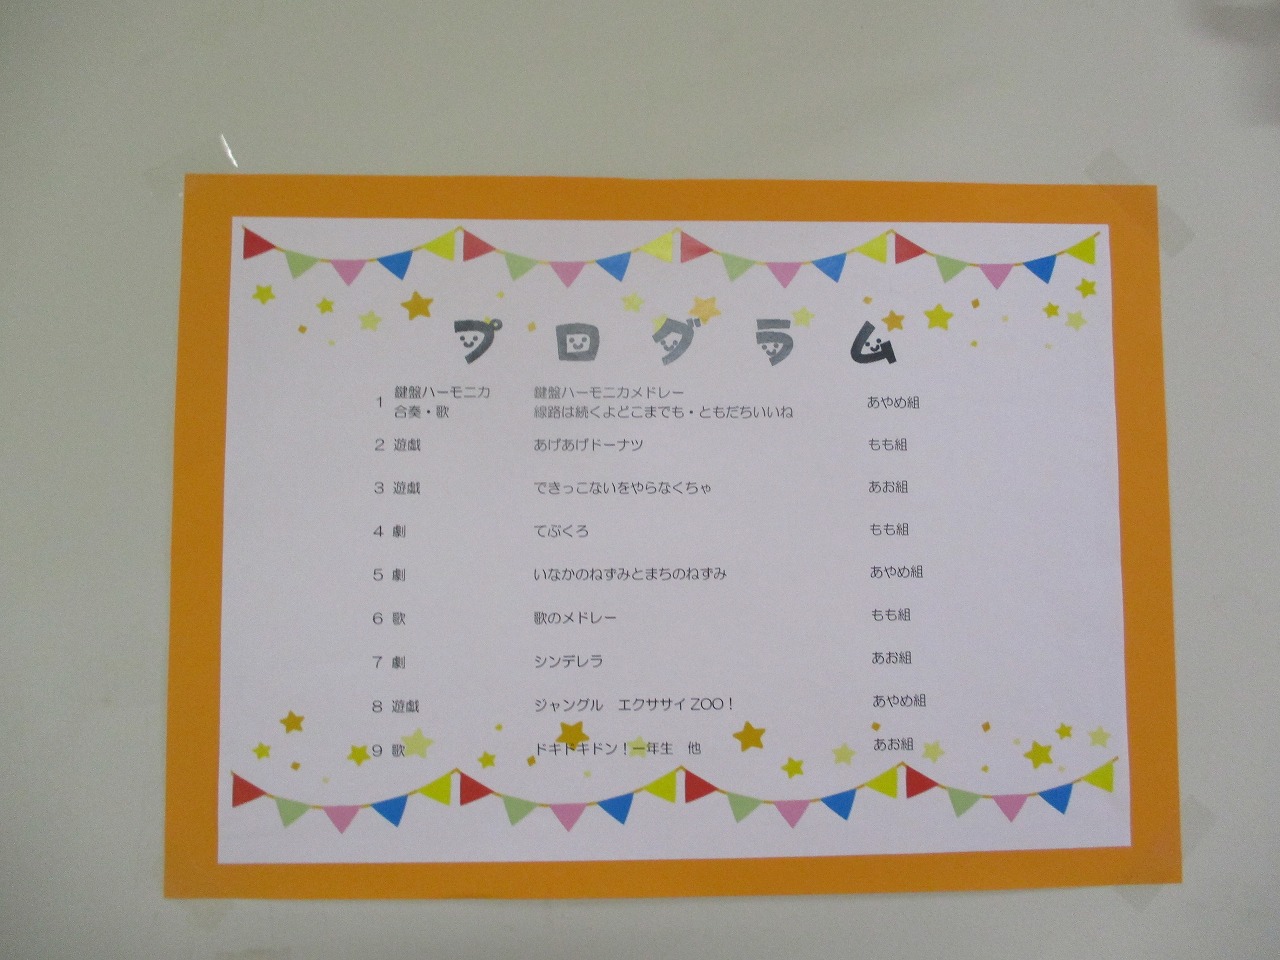 プログラム
1 鍵盤ハーモニカ 合奏・歌 鍵盤ハーモニカメドレー 線路は続くよどこまでも・ともだちいいね あやめ組
2 遊戯 あげあげドーナツ もも組
3 遊戯 できっこないをやらなくちゃ あお組
4 劇 てぶくろ もも組
5 劇 いなかのねずみとまちのねずみ あやめ組
6 歌 歌のメドレー もも組
7 劇 シンデレラ あお組
8 遊戯 ジャングル　エクササイZOO！ あやめ組
9 歌 ドキドキドン！一年生　他 あお組